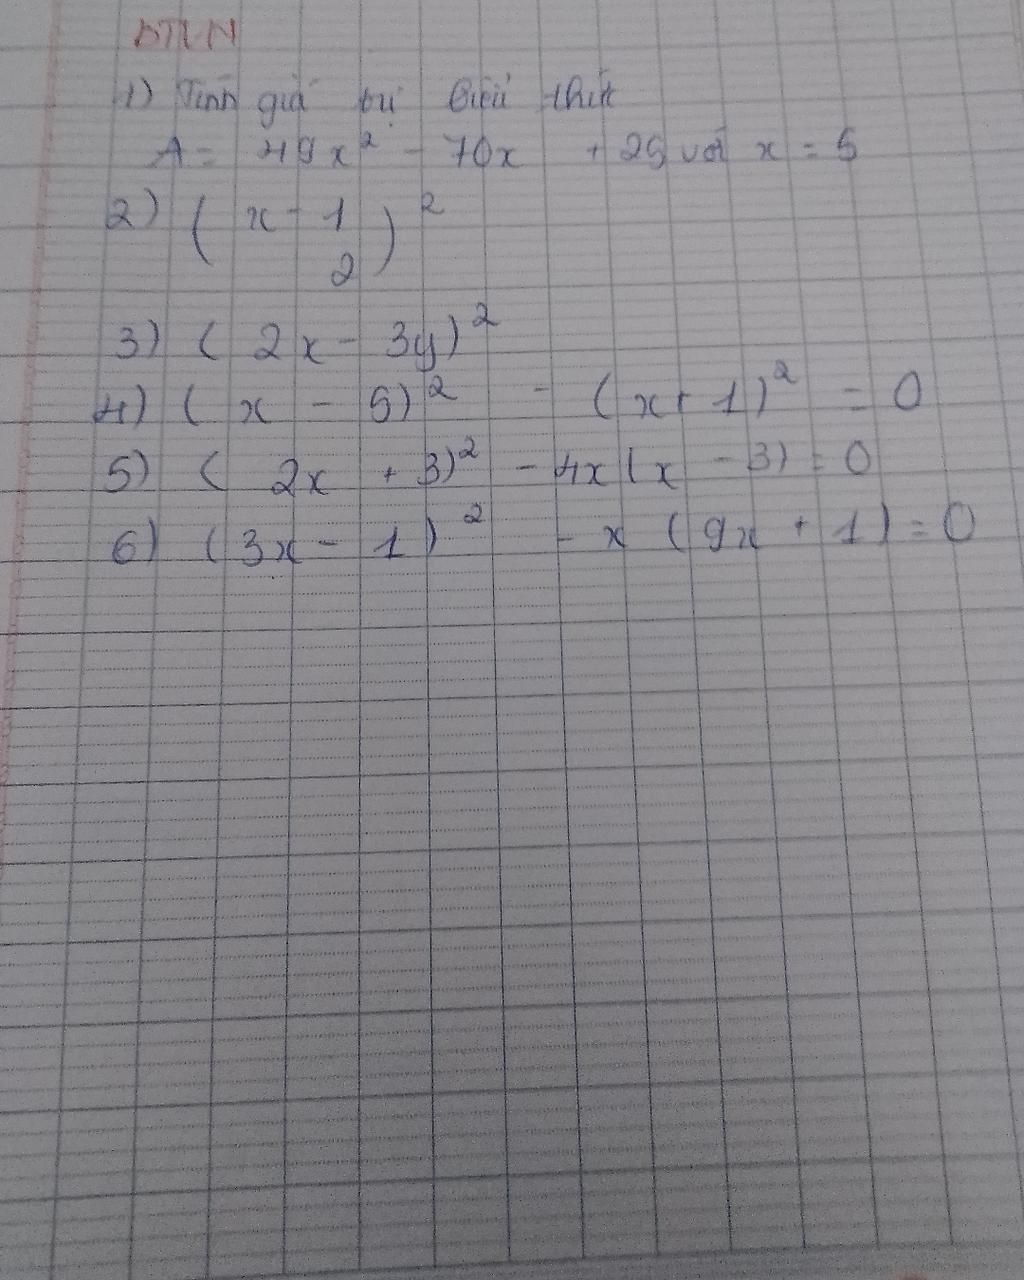 BTVN
1) Tính giá trị biểu thức
A = 49x² - 70x + 25 với x = 5
2) ( x - 1 )²
2
3) ( 2x - 3y)²
4) ( x - 5)² - (x + 1)² = 0
5) ( 2x + 3)² - 4x(x - 3) = 0
6) (3x - 1)² - x (9x + 1) = 0